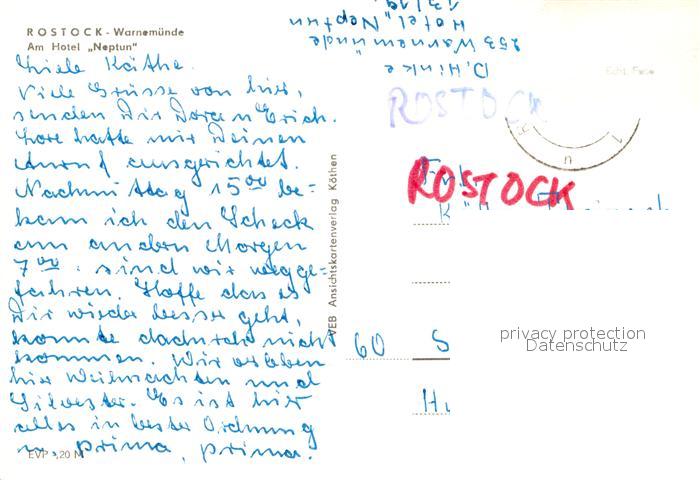 ROSTOCK - Warnemünde
Am Hotel „Neptun"
Liebe Käthe.
Viele Grüsse von hier,
senden Dir Dora u. Erich.
Lore hatte mir Deinen
Anruf ausgerichtet.
Nachmittag 15⁰⁰ be-
kam ich den Scheck
am andern Morgen
7⁰⁰ sind wir wegge-
fahren. Hoffe das es
Dir wieder besser geht,
konnte dadurch nicht
kommen. Wir erleben
hier Weihnachten und
Silvester. Es ist hier
alles in bester Ordnung
prima, prima.
EVP 0,20 M
VEB Ansichtskartenverlag Köthen
D. Hinke
253 Warnemünde
Hotel „Neptun"
Echt Foto
ROSTOCK
ROSTOCK
60 S
privacy protection
Datenschutz